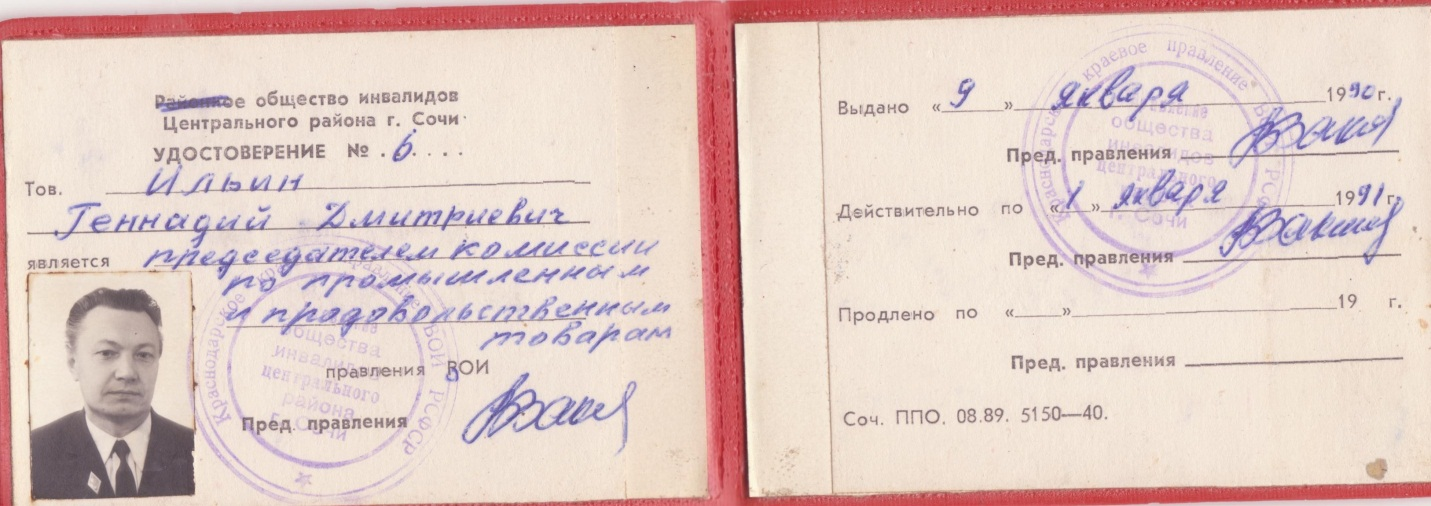 Районное общество инвалидов
Центрального района г. Сочи
УДОСТОВЕРЕНИЕ № . 6 . . . .
Тов. Ильин
Геннадий Дмитриевич
является председателем комиссии
по промышленным
и продовольственным
товарам
правления ВОИ
Пред. правления
Краснодарское краевое правление ВОИ РСФСР
общества
инвалидов
центрального
района
г. Сочи
Выдано «9» января 1990 г.
Пред. правления
Действительно по «1» января 1991 г.
Пред. правления
Продлено по «» 19 г.
Пред. правления
Соч. ППО. 08.89. 5150—40.
Краснодарское краевое правление ВОИ РСФСР
общества
инвалидов
центрального
г. Сочи